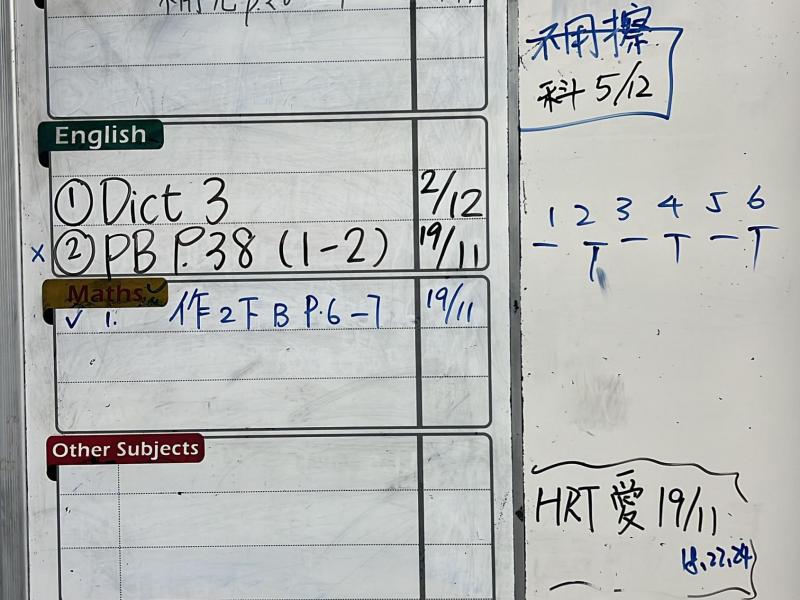 不用擦
科 5/12
English
① Dict 3 2/12
x ② PB P.38 (1-2) 19/11
1 2 3 4 5 6
Maths ✓
✓ 1. 作2下B P.6-7 19/11
Other Subjects
HRT 愛 19/11
18,22,24